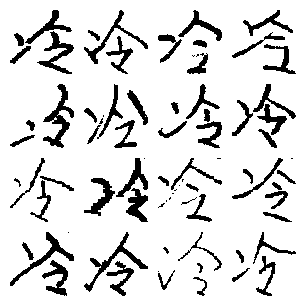 冷冷冷冷
冷冷冷冷
冷冷冷冷
冷冷冷冷